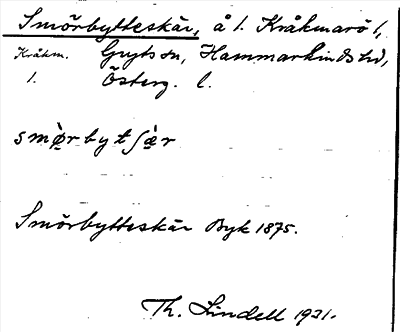 Smörbytteskär, å 1. Kråkmarö 1,
Kråkm. Gryts sn, Hammarkinds hd,
1. Österg. l.
smö̀rbytʃæ̀r
Smörbytteskär Byk 1875.
Th. Lindell 1921.